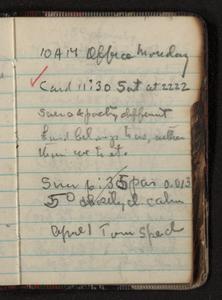 10 AM Office Monday
Card 11:30 Sat at 2222
different
Land belongs to us, rather
than we to it.
Sun 6:35 par 0.013
5° calm
April Tom Sped